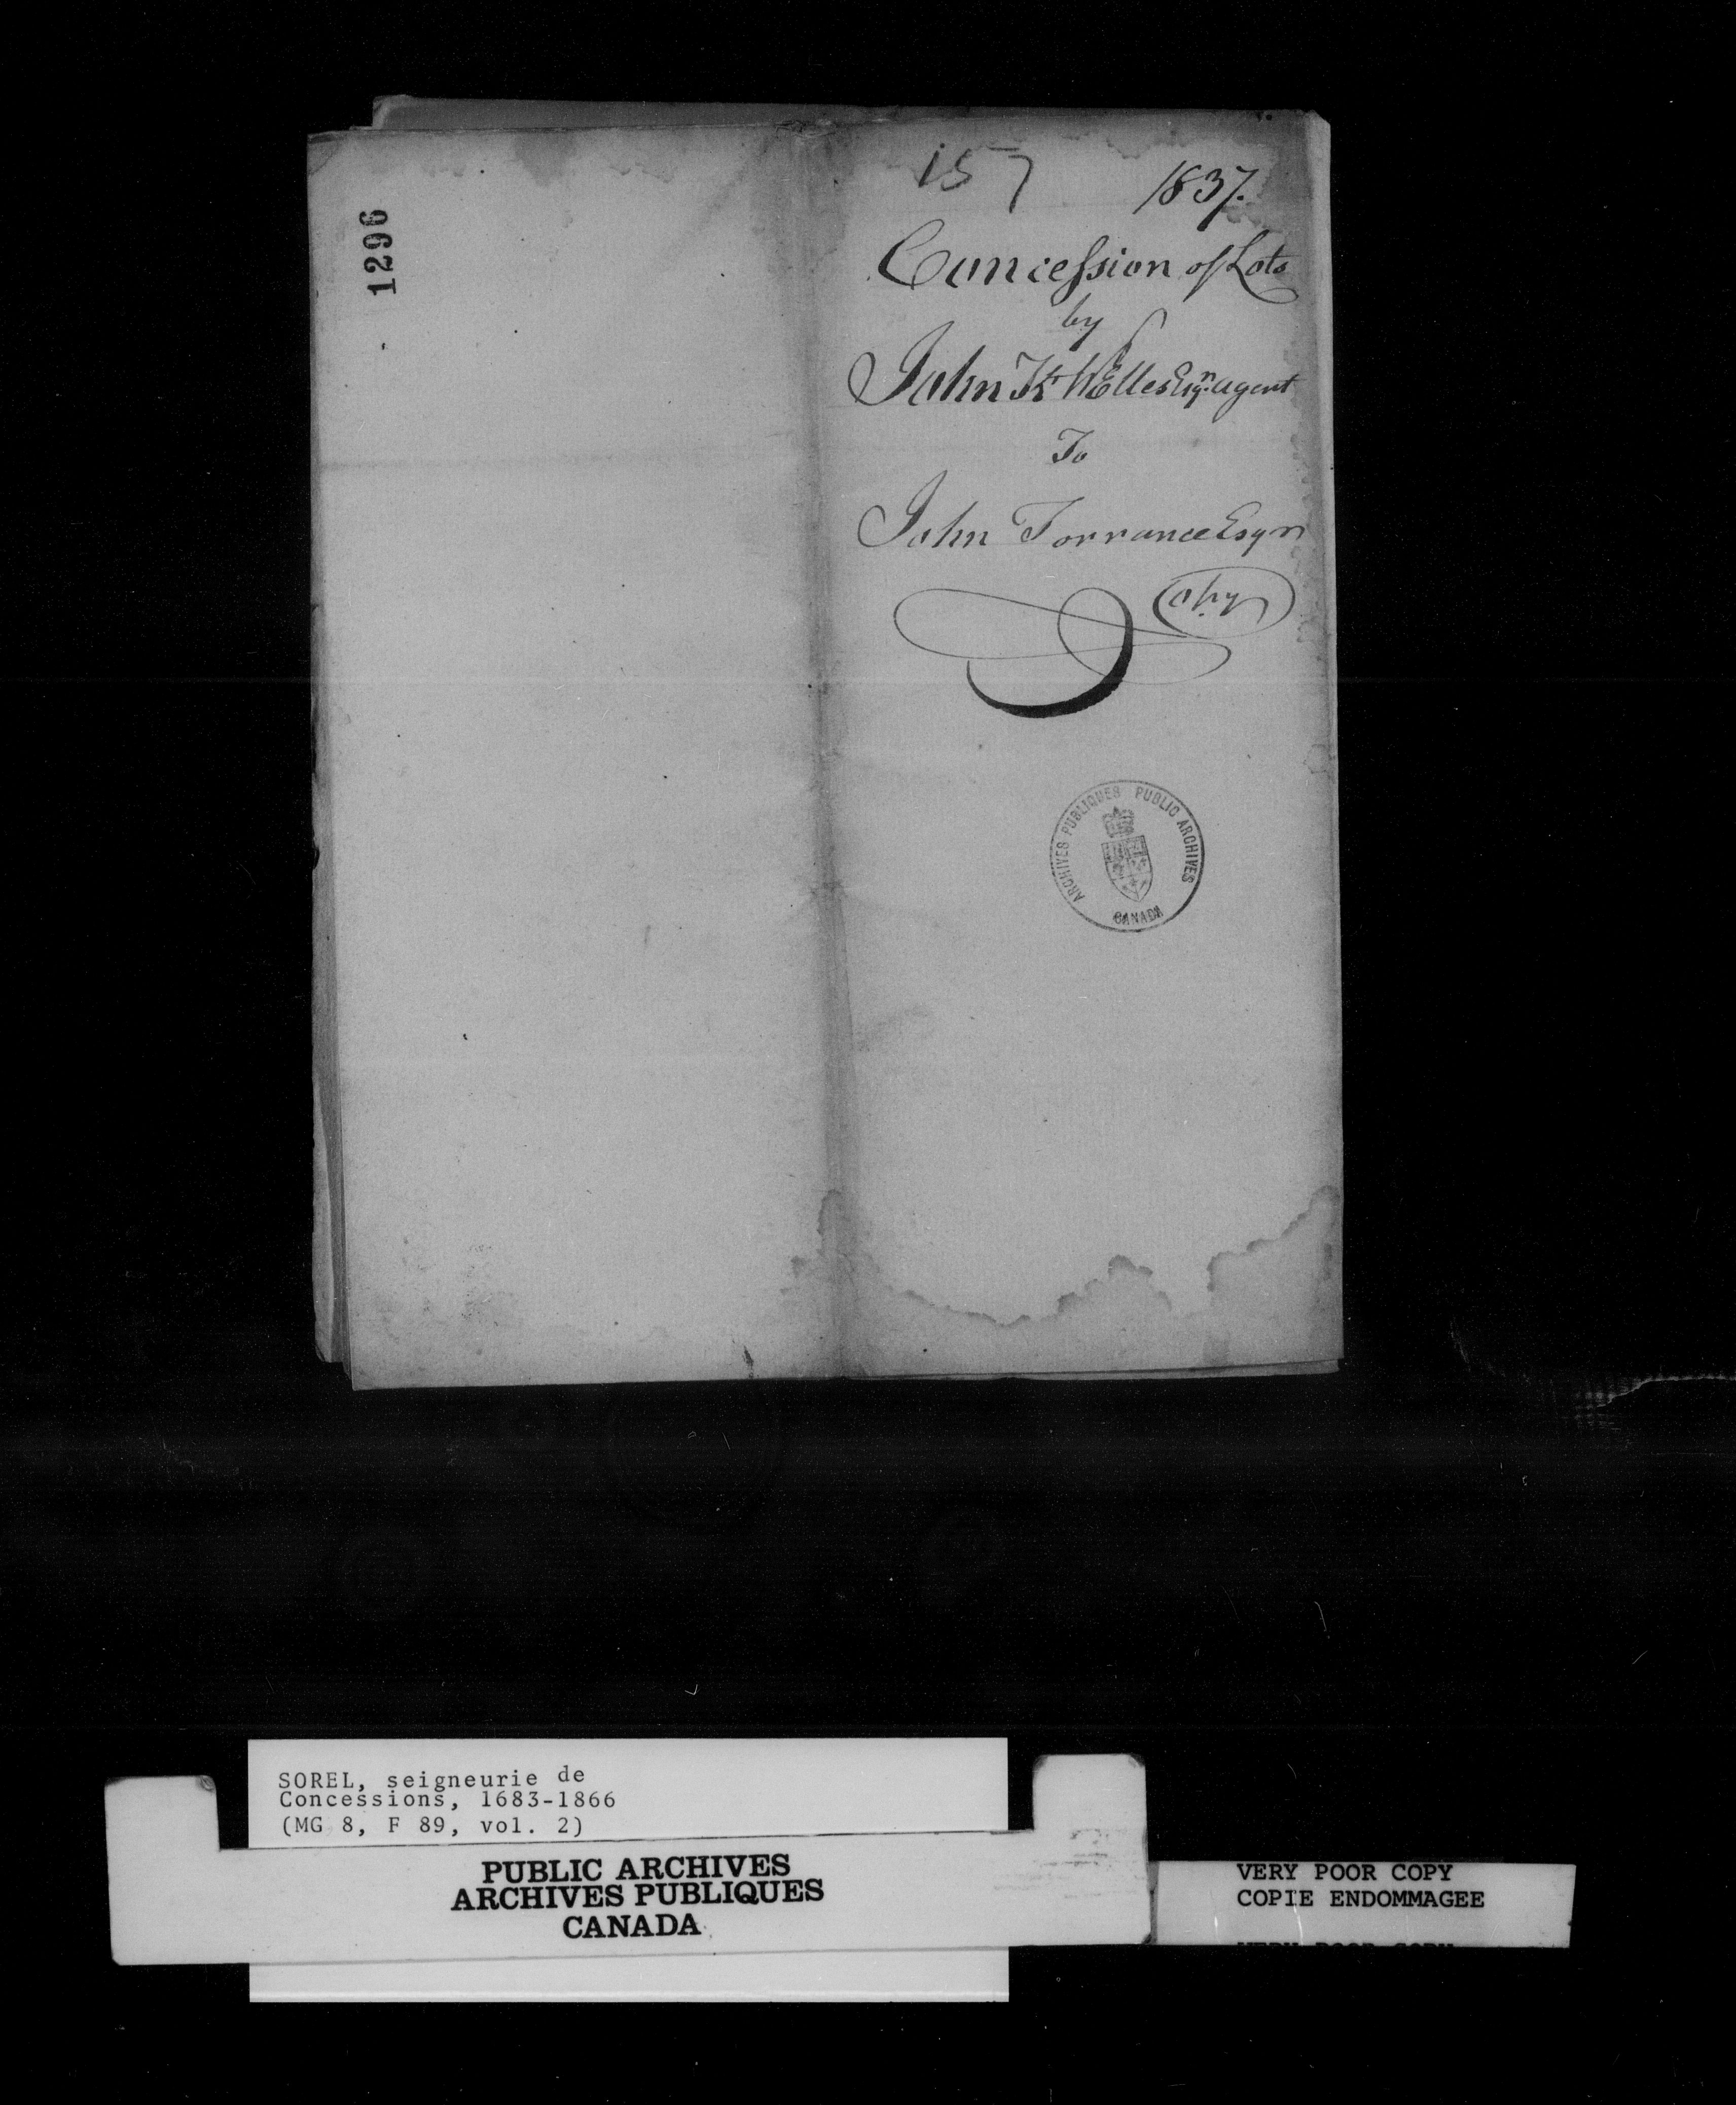 1296
157
1837.
Concession of Lots
by
John Kt Welles Esqr. agent
To
John Torrance Esqr
Copy
ARCHIVES PUBLIQUES PUBLIC ARCHIVES
CANADA
SOREL, seigneurie de
Concessions, 1683-1866
(MG 8, F 89, vol. 2)
PUBLIC ARCHIVES
ARCHIVES PUBLIQUES
CANADA
VERY POOR COPY
COPIE ENDOMMAGEE
VERY POOR COPY